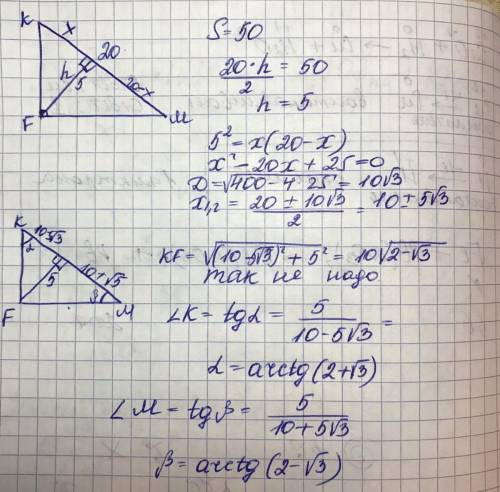 K
x
20
h
5
20-x
F
M
S=50
20·h/2 = 50
h = 5
5² = x(20-x)
x² - 20x + 25 = 0
D = √400-4·25 = 10√3
x₁,₂ = 20 ± 10√3/2 = 10 ± 5√3
K
10-5√3
α
5
10+√5
β
F
M
KF = √(10-5√3)² + 5² = 10√2-√3
так не надо
∠K = tgα = 5/10-5√3 =
α = arctg(2+√3)
∠M = tgβ = 5/10+5√3
β = arctg(2-√3)